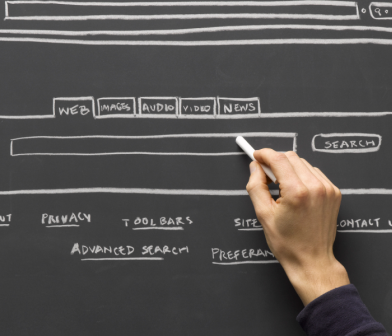 WEB IMAGES AUDIO VIDEO NEWS
SEARCH
PRIVACY TOOLBARS SITE CONTACT
ADVANCED SEARCH